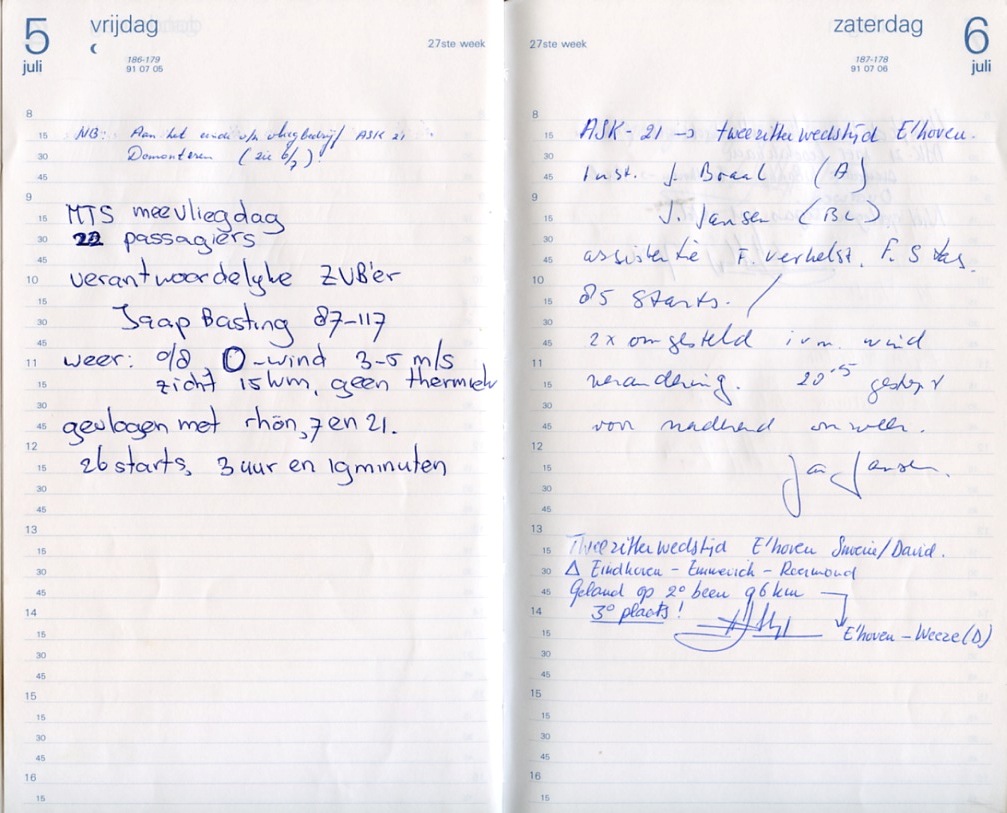 5 vrijdag
juli
186-179
91 07 05
27ste week
8
15 NB: Aan het einde v/h vliegbedrijf ASK 21
30 Demonteren (zie 6/7)
45
9
MTS meevliegdag
15
30 22 passagiers
45
10 verantwoordelyke ZVB'er
15
30 Jaap Basting 87-117
45
11 weer: 0/8 O-wind 3-5 m/s
15 zicht 15 km, geen thermiek
30
45 gevlogen met rhön, 7 en 21.
12
15 26 starts, 3 uur en 19 minuten
30
45
13
15
30
45
14
15
30
45
15
15
30
45
16
15
zaterdag 6
juli
27ste week
187-178
91 07 06
8
15 ASK-21 → tweezitterwedstijd E'hoven.
30
45 Inst. J. Braal (A)
9
15 J. Jansen (BL)
30
45 assistentie F. Verhelst, F. Stas.
10
15 85 starts.
30
45 2x omgesteld i.v.m. wind
11
15 verandering. 20-5 gestopt
30
45 voor naderend onweer.
12
15 Jan Jansen.
30
45
13
15 Tweezitterwedstijd E'hoven Smeine/David.
30 Δ Eindhoven - Emmerich - Roermond
45 Geland op 2e been 96 km
14 3e plaats!
15 E'hoven - Weeze (D)
30
45
15
15
30
45
16
15